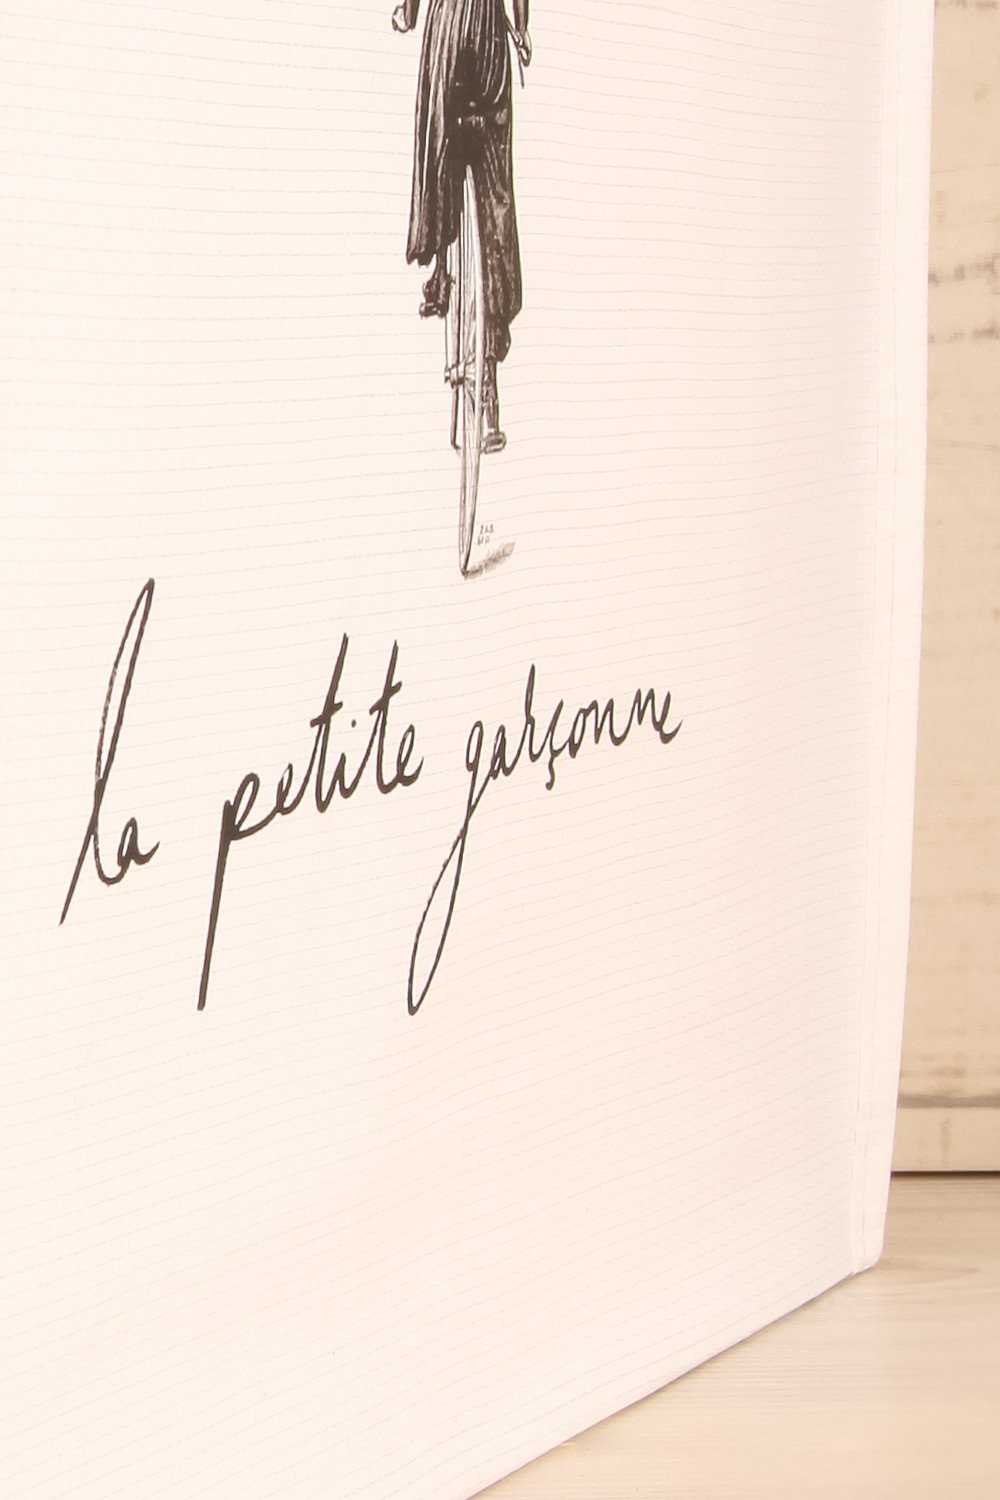 la petite garçonne